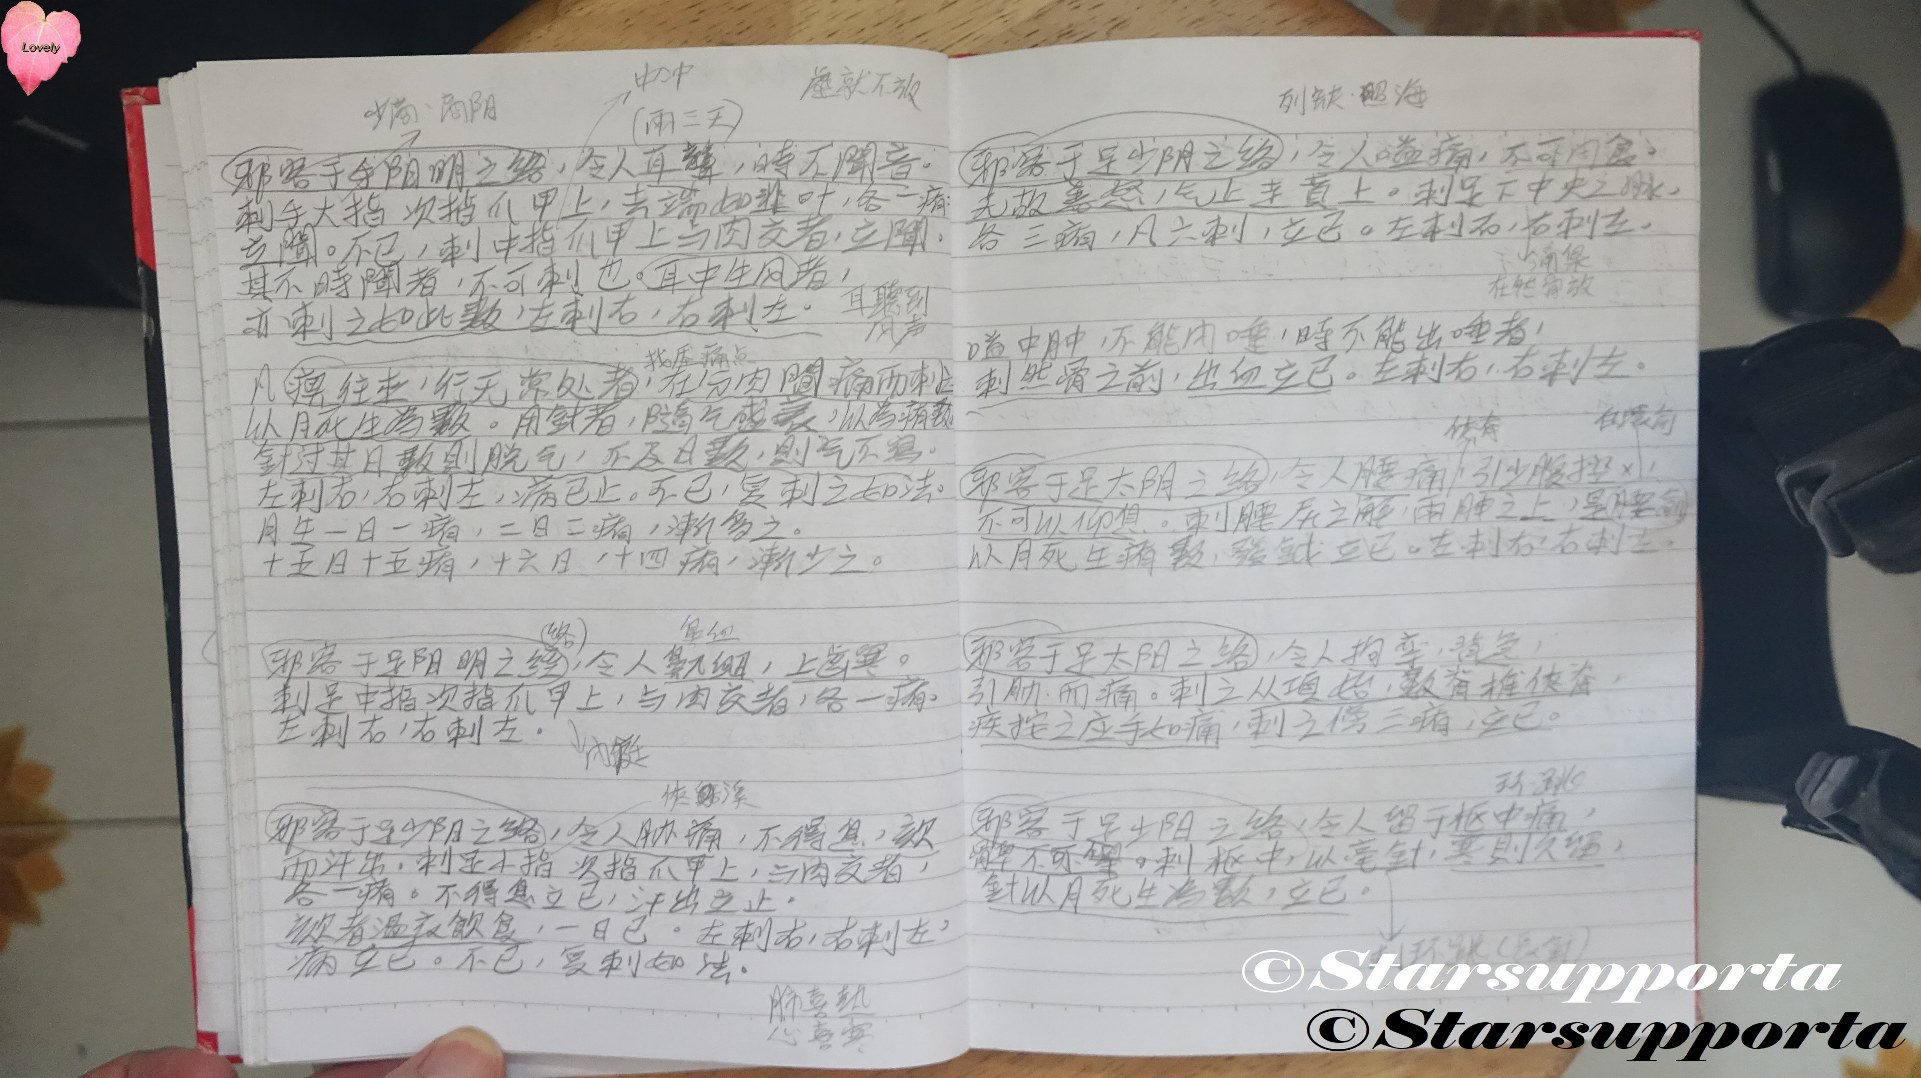 Lovely
少商·商阳
中冲
(兩三天)
虛就不放
邪客于手阳明之络，令人耳聾，時不聞音。
刺手大指次指爪甲上，去端如韭叶，各一痏
立聞。不已，刺中指爪甲上与肉交者，立聞。
其不時聞者，不可刺也。耳中生风者，
亦刺之如此數，左刺右，右刺左。
耳聽到
风声
凡痹往走，行无常处者，在分肉間痛而刺之
以月死生為數。用針者，隨气盛衰，以為痏數
針过其日數則脱气，不及日數，則气不瀉。
左刺右，右刺左，病已止。不已，复刺之如法。
月生一日一痏，二日二痏，漸多之。
十五日十五痏，十六日，十四痏，漸少之。
(络)
邪客于足阳明之经，令人鼽衄，上齒寒。
刺足中指次指爪甲上，与肉交者，各一痏。
左刺右，右刺左。
内庭
邪客于足少阳之络，令人胁痛，不得息，欬
而汗出。刺足小指次指爪甲上，与肉交者，
各一痏。不得息立已，汗出立止。
欬者溫衣飲食，一日已。左刺右，右刺左，
病立已。不已，复刺如法。
肺喜热
心喜寒
列缺·照海
邪客于足少阴之络，令人嗌痛，不可内食。
无故善怒，气上走賁上。刺足下中央之脉。
各三痏，凡六刺，立已。左刺右，右刺左。
嗌中肿，不能内唾，時不能出唾者，
刺然骨之前，出血立已。左刺右，右刺左。
邪客于足太阴之络，令人腰痛，引少腹控
不可以仰息。刺腰尻之解，兩胂之上，是腰俞
以月死生痏數，發針立已。左刺右，右刺左。
邪客于足太阳之络，令人拘挛，背急，
引胁而痛。刺之从項始，數脊椎侠脊，
疾按之应手如痛，刺之傍三痏，立已。
环跳
邪客于足少阳之络，令人留于枢中痛，
髀不可举。刺枢中，以毫針，寒則久留，
針以月死生為數，立已。
©Starsupporta
©Starsupporta